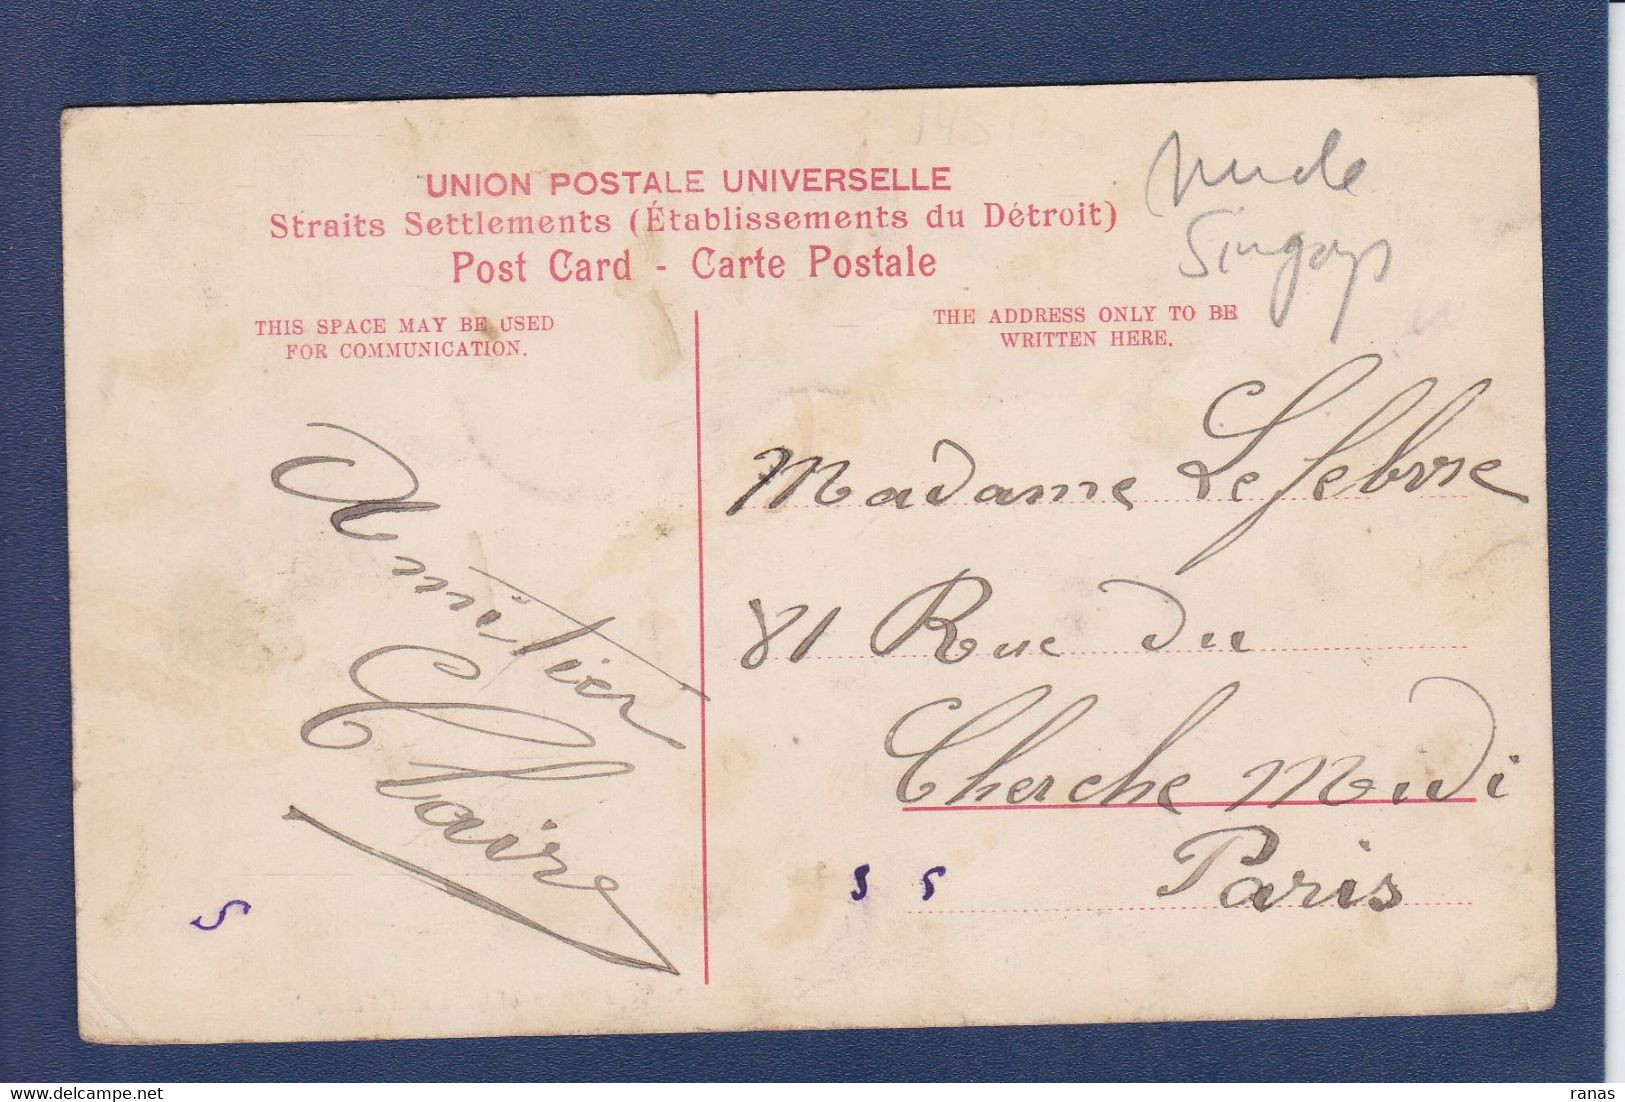 UNION POSTALE UNIVERSELLE
Straits Settlements (Établissements du Détroit)
Post Card - Carte Postale
nude
Singap
THIS SPACE MAY BE USED
FOR COMMUNICATION.
THE ADDRESS ONLY TO BE
WRITTEN HERE.
Amitier
Claire
Madame Lefebvre
81 Rue du
Cherche Midi
Paris
S
S S
ranas